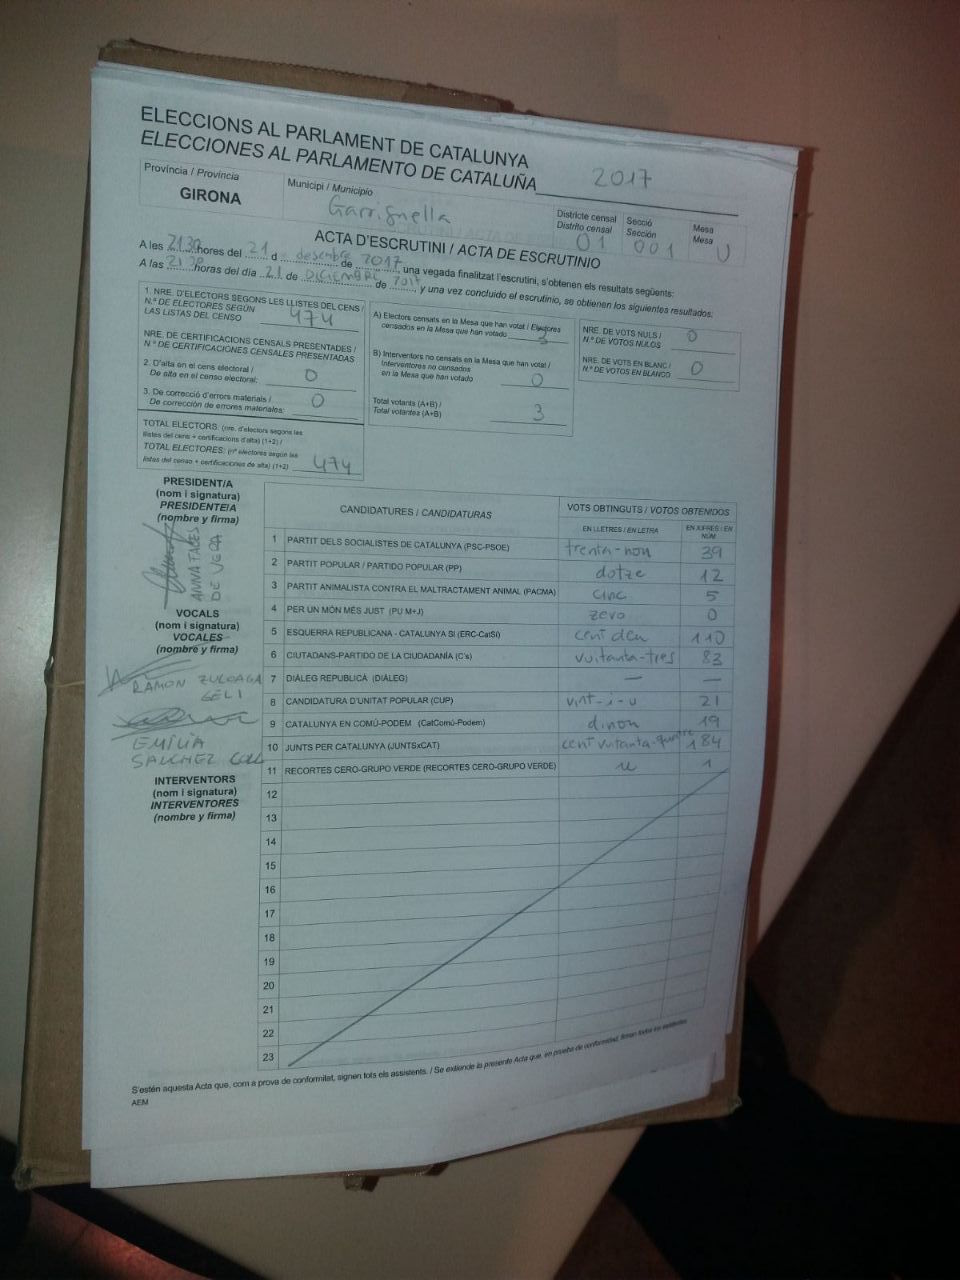 ELECCIONS AL PARLAMENT DE CATALUNYA
ELECCIONES AL PARLAMENTO DE CATALUÑA 2017
Província / Provincia
GIRONA
Municipi / Municipio
Garriguella
Districte censal
Distrito censal
01
Secció
Sección
001
Mesa
Mesa
U
ACTA D'ESCRUTINI / ACTA DE ESCRUTINIO
A les 21 30 hores del 21 d desembre de 2017, una vegada finalitzat l'escrutini, s'obtenen els resultats següents:
A las 21 30 horas del día 21 de DICIEMBRE de 2017 y una vez concluido el escrutinio, se obtienen los siguientes resultados:
1. NRE. D'ELECTORS SEGONS LES LLISTES DEL CENS /
N.º DE ELECTORES SEGÚN
LAS LISTAS DEL CENSO 474
NRE. DE CERTIFICACIONS CENSALS PRESENTADES /
N.º DE CERTIFICACIONES CENSALES PRESENTADAS
2. D'alta en el cens electoral /
De alta en el censo electoral: 0
3. De correcció d'errors materials /
De corrección de errores materiales: 0
TOTAL ELECTORS: (nre. d'electors segons les
llistes del cens + certificacions d'alta) (1+2) /
TOTAL ELECTORES: (nº electores según las
listas del censo + certificaciones de alta) (1+2) 474
A) Electors censats en la Mesa que han votat / Electores
censados en la Mesa que han votado 3
B) Interventors no censats en la Mesa que han votat /
Interventores no censados
en la Mesa que han votado 0
Total votants (A+B) /
Total votantes (A+B) 3
NRE. DE VOTS NULS /
N.º DE VOTOS NULOS 0
NRE. DE VOTS EN BLANC /
N.º DE VOTOS EN BLANCO 0
PRESIDENT/A
(nom i signatura)
PRESIDENTE/A
(nombre y firma)
ANNA
DE VERA
VOCALS
(nom i signatura)
VOCALES
(nombre y firma)
RAMON ZULOAGA
GELI
EMÍLIA
SANCHEZ COLL
INTERVENTORS
(nom i signatura)
INTERVENTORES
(nombre y firma)
CANDIDATURES / CANDIDATURAS
VOTS OBTINGUTS / VOTOS OBTENIDOS
EN LLETRES / EN LETRA
EN XIFRES / EN NÚM
1 PARTIT DELS SOCIALISTES DE CATALUNYA (PSC-PSOE) trenta-nou 39
2 PARTIT POPULAR / PARTIDO POPULAR (PP) dotze 12
3 PARTIT ANIMALISTA CONTRA EL MALTRACTAMENT ANIMAL (PACMA) cinc 5
4 PER UN MÓN MÉS JUST (PU M+J) zero 0
5 ESQUERRA REPUBLICANA - CATALUNYA SI (ERC-CatSí) cent deu 110
6 CIUTADANS-PARTIDO DE LA CIUDADANÍA (C's) vuitanta-tres 83
7 DIÀLEG REPUBLICÀ (DIÀLEG) — —
8 CANDIDATURA D'UNITAT POPULAR (CUP) vint-i-u 21
9 CATALUNYA EN COMÚ-PODEM (CatComú-Podem) dinou 19
10 JUNTS PER CATALUNYA (JUNTSxCAT) cent vuitanta-quatre 184
11 RECORTES CERO-GRUPO VERDE (RECORTES CERO-GRUPO VERDE) u 1
12
13
14
15
16
17
18
19
20
21
22
23
S'estén aquesta Acta que, com a prova de conformitat, signen tots els assistents. / Se extiende la presente Acta que, en prueba de conformidad, firman todos los asistentes
AEM